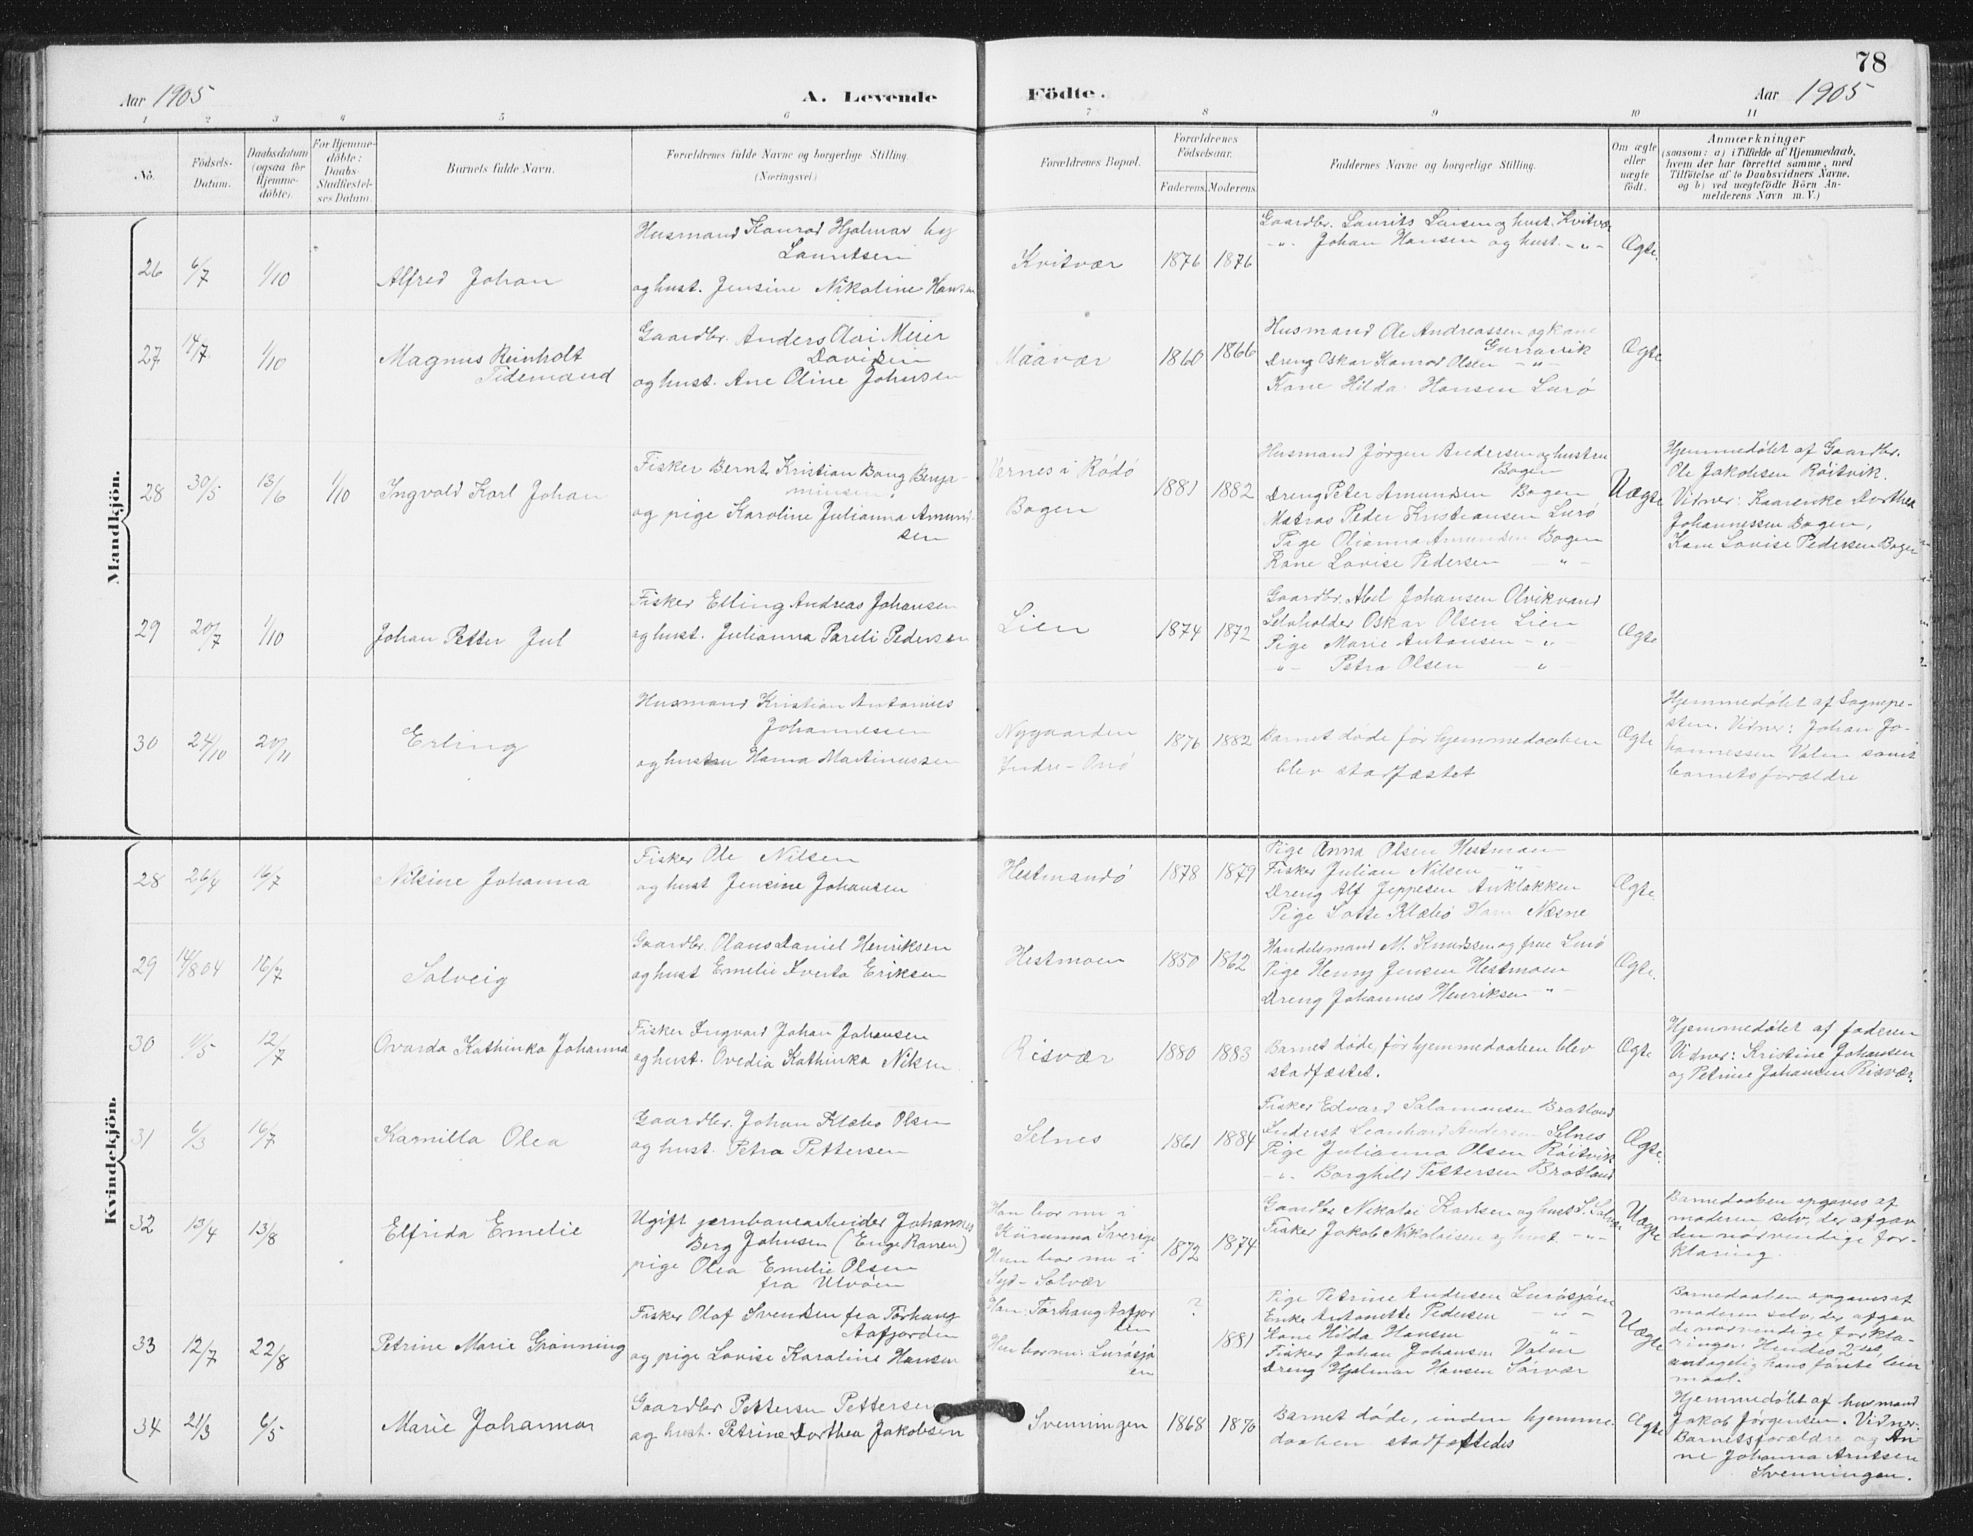 78
Aar 1905
A. Levende
Födte.
Aar 1905
1 2 3 4 5 6 7 8 9 10 11
No.
Födsels-
Datum.
Daabsdatum
(ogsaa for
Hjemme-
döbte).
For Hjemme-
döbte:
Daabs-
Stadfæstel-
ses Datum.
Barnets fulde Navn.
Forældrenes fulde Navne og borgerlige Stilling.
(Næringsvei)
Forældrenes Bopæl.
Forældrenes
Födselsaar.
Faderens. Moderens.
Faddernes Navne og borgerlige Stilling.
Om ægte
eller
uægte
født.
Anmærkninger
(saasom: a) i Tilfælde af Hjemmedaab,
hvem der har forrettet samme, med
Tilföielse af to Daabsvidners Navne.
og b) ved uægtefödte Börn An-
melderens Navn m. V.)
Mandkjön.
26 6/7 1/10
Alfred Johan
Husmand Konrad Hjalmar
Lauritsen
og hust. Jensine Nikoline Hansen
Kvitvær
1876 1876
Gaardbr. Laurits Larsen og hust. Kvitvær
-"- Johan Hansen og hust. -"-
Ægte.
27 14/7 1/10
Magnus Reinholt
Tidemand
Gaardbr. Anders Olai Meier
Davidsen
og hust. Ane Oline Johnsen
Maavær
1860 1866
Husmand Ole Andreassen og kone
Dreng Oskar Konrad Olsen -"-
Kone Hilda Hansen Lurö
Ægte
28 30/5 13/6 1/10
Ingvald Karl Johan
Fisker Bernt Kristian Bang Benja-
minsen
og pige Karoline Julianna Amund-
sen
Værnes i Rödö
Bogen
1881 1882
Husmand Jörgen Andersen og hustru
Bogen
Dreng Peter Amundsen Bogen
Matros Peder Kristiansen Lurö
Pige Olianna Amundsen Bogen
Kone Lovise Pedersen -"-
Uægte
Hjemmedöbt af Gaardbr.
Ole Jakobsen Röitvik.
Vidner: Kaarenke Dorthea
Johannessen Bogen,
Kone Lovise Pedersen Bogen
29 20/7 1/10
Johan Petter Jul
Fisker Elling Andreas Johansen
og hust. Julianna Pareli Pedersen
Lien
1874 1872
Gaardbr. Abel Johansen Olvikvand
Selvholder Oskar Olsen Lien
Pige Marie Antonsen -"-
-"- Petra Olsen -"-
Ægte
30 24/10 20/11
Erling
Husmand Kristian Antonius
Johannessen
og hustru Hanna Martinussen
Nygaarden
Indre-Onö
1876 1882
Barnet døde før hjemmedaaben
blev stadfæstet
Ægte
Hjemmedöbt af Sognepre-
sten. Vidner: Johan Jo-
hannessen Valen samt
barnets forældre
Kvindekjön.
28 26/4 16/7
Nikine Johanna
Fisker Ole Nilsen
og hust Jensine Johansen
Hestmandö
1878 1879
Pige Anna Olsen Hestman
Fisker Julian Nilsen "
Dreng Alf Jeppesen Anklakken
Pige Lotte Klæbo Næsne
Ægte.
29 14/8 04 16/7
Solveig
Gaardbr. Olaus Daniel Henriksen
og hust Emelie Sverta Eriksen
Hestmoen
1850 1862
Handelsmand M. Knudssen og frue Lurö
Pige Henny Jensen Hestmoen
Dreng Johannes Henriksen -"-
Ægte.
30 11/5 12/7
Ovarda Kathinka Johanna
Fisker Ingvard Johan Johansen
og hust. Ovedia Kathinka Nilsen
Risvær
1880 1883
Barnet døde før hjemmedaaben blev
stadfæstet.
Ægte
Hjemmedöbt af faderen
Vidner: Kristine Johansen
og Petrine Johansen Risvær.
31 6/3 16/7
Kamilla Olea
Gaardbr. Johan Klæbo Olsen
og hust. Petra Pettersen
Selnes
1861 1884
Fisker Edvard Salamonsen Bratland
Inderst Leonhard Andersen Selnes
Pige Julianna Olsen Röitvik
-"- Borghild Pettersen Bratland
Ægte.
32 13/4 13/8
Elfrida Emelie
Ugift jernbanearbeider Johannes
Berg Johnsen
pige Olea Emelie Olsen
fra Ulvöen
Han bor nu i
Kiirunna Sverige
Hun bor nu i
Syd-Solvær
1872 1874
Gaardbr Nikolai Karlsen og hust S. Solvær
Fisker Jakob Nikolaisen og hust -"-
Uægte
Barnedaaben opgaves af
moderen selv, der afgav
den nödvendige for-
klaring.
33 12/7 22/8
Petrine Marie Grönning
Fisker Olaf Svendsen fra Torhaug
Aafjorden
og pige Lovise Karoline Hansen
Han: Torhaug Aafjor
den
Hun bor nu: Lurösjö
en
? 1881
Pige Petrine Andersen Lurösjöen
Enke Antonette Pedersen -"-
Kone Hilda Hansen -"-
Fisker Johan Johansen Valen
Dreng Hjalmar Hansen Sörvær
Uægte
Barnedaaben opgaves af
moderen selv, der afgav
de nödvendige forkla-
ringer. Hendes 2det,
antagelig hans förste leier
maal.
34 21/3 6/5
Marie Johannar
Gaardbr Pettersen Pettersen
og hust. Petrine Dorthea Jakobsen
Svenningen
1868 1870
Barnet døde, inden hjemme-
daaben stadfæstedes
Ægte
Hjemmedöbt af husmand
Jakob Jörgensen. Vidner:
Barnets forældre og An-
ne Johanna Arntsen
Svenningen.